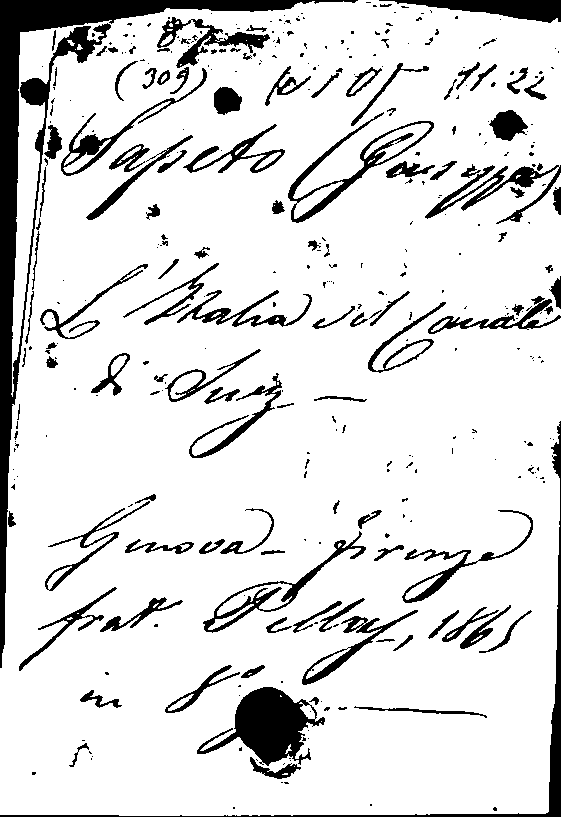 (309) 11.22
Sapeto (Giuseppe)
L'Italia e il Canale
di Suez —
Genova - Firenze
frat. Pellas, 1865
in 8°